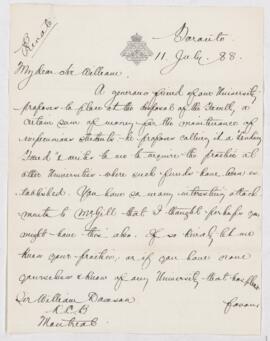 Private
Toronto
11 July. 88.
My dear Sir William.
A generous friend of our University
proposes to place at the disposal of the Senate, a
certain sum of money for the maintenance of
impecunious students - he proposes calling it a Lending
Fund & asks me to enquire the practice at
other Universities where such funds have been es-
tablished. You have so many interesting attach
ments to McGill that I thought perhaps you
might have this also. If so kindly let me
know your practice, or if you have none
yourselves & know of any University that has please
Sir William Dawson
K C B
Montreal
favour